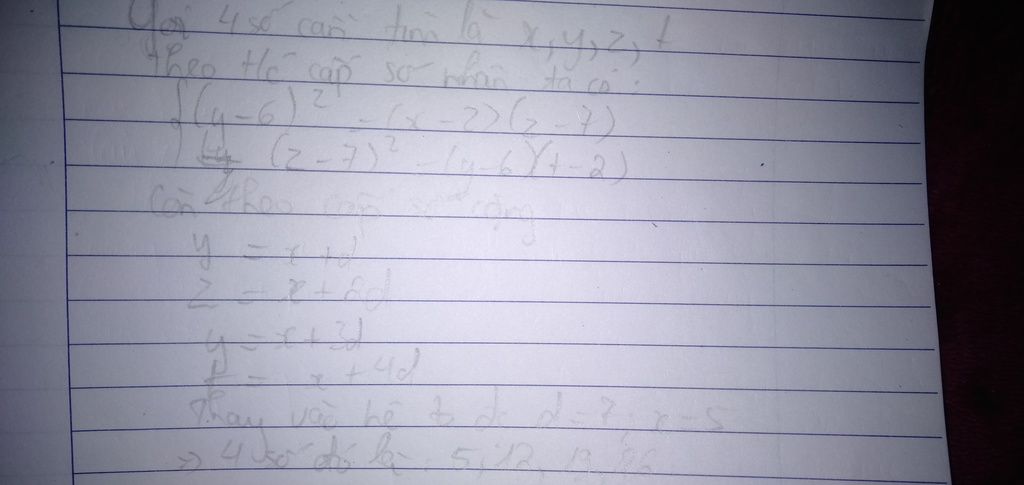 Gọi 4 số cần tìm là x, y, z, t
Theo t/c cấp số nhân ta có:
(y-6)² = (x-2)(z-7)
(z-7)² = (y-6)(t-2)
Còn theo cấp số cộng
y = x+d
z = x+2d
y = x+3d
t = x+4d
Thay vào hệ d=7; x=5
=> 4 số đó là: 5, 12, 19, 26